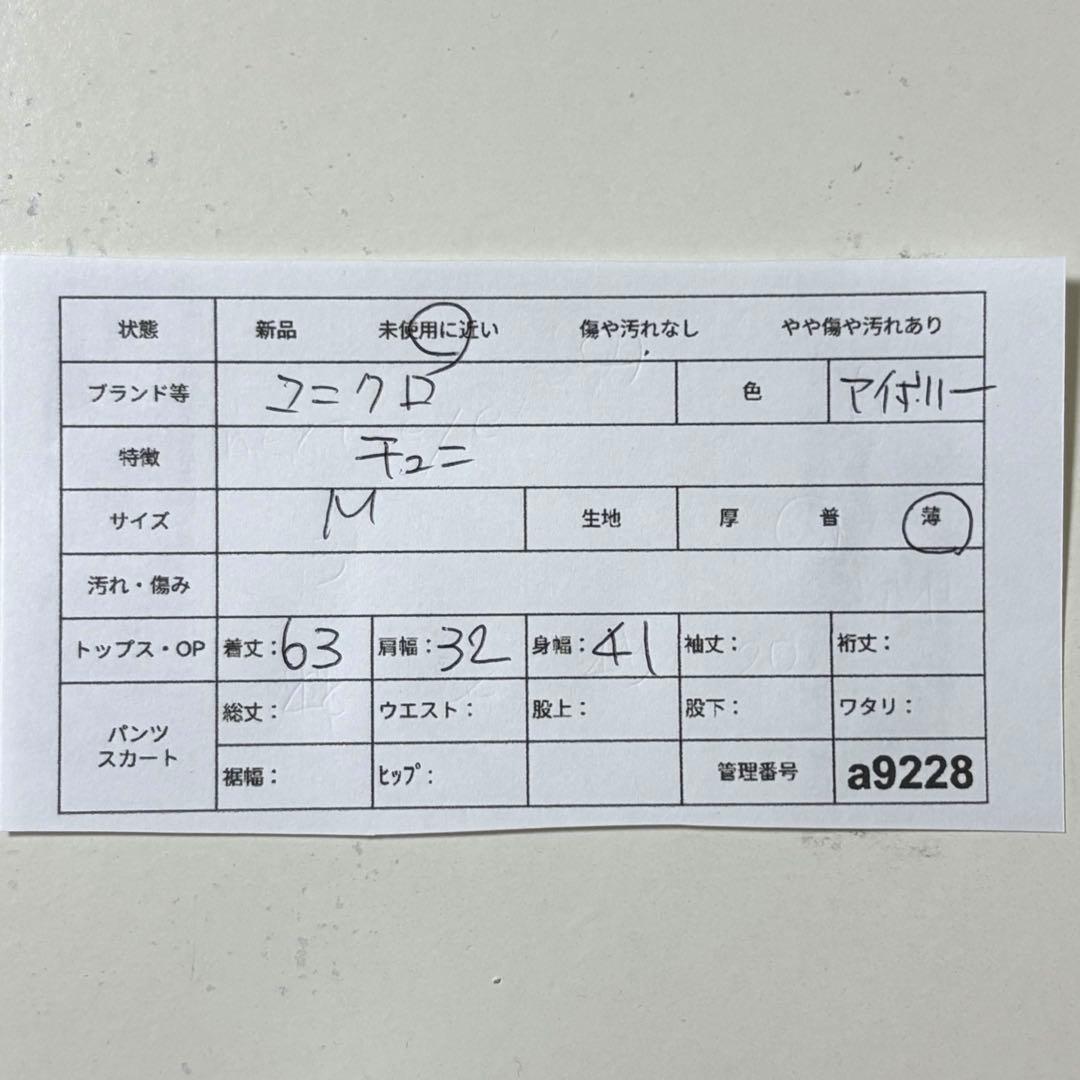 状態 新品 未使用に近い 傷や汚れなし やや傷や汚れあり
ブランド等 ユニクロ 色 アイボリー
特徴 チュニ
サイズ M 生地 厚 普 薄
汚れ・傷み
トップス・OP 着丈:63 肩幅:32 身幅:41 袖丈: 裄丈:
パンツ
スカート
総丈: ウエスト: 股上: 股下: ワタリ:
裾幅: ﾋｯﾌﾟ: 管理番号 a9228